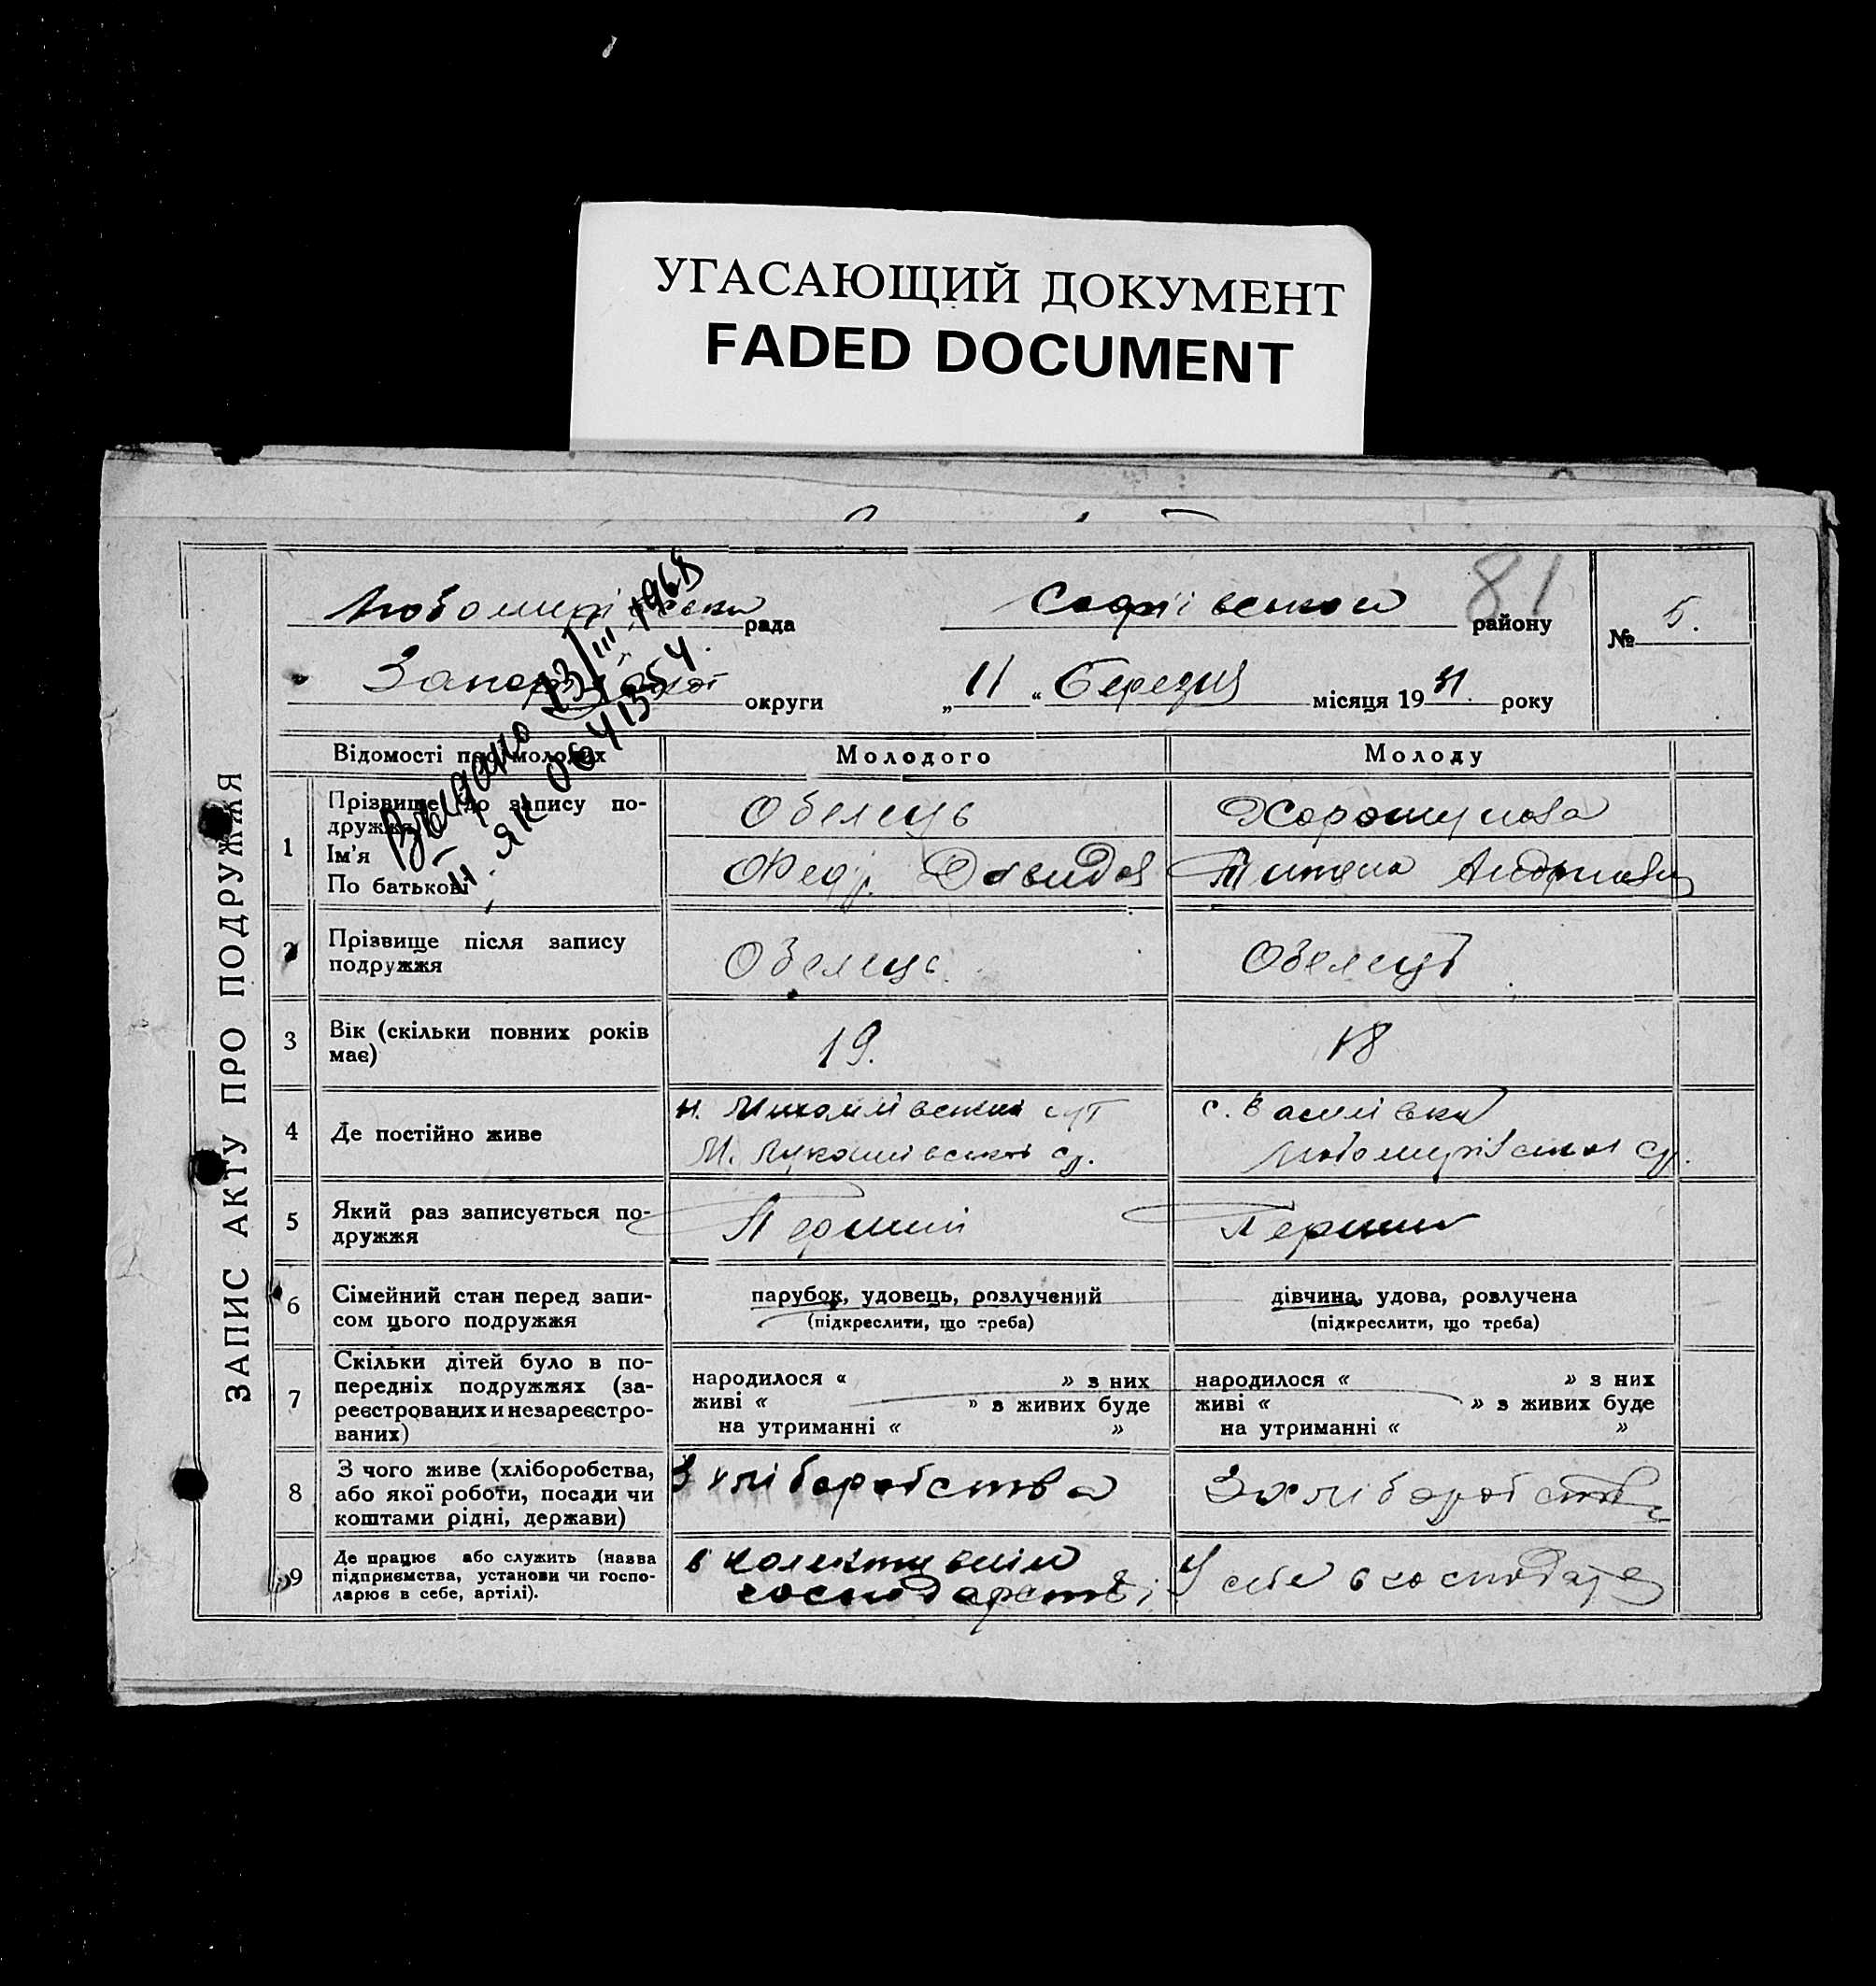 УГАСАЮЩИЙ ДОКУМЕНТ
FADED DOCUMENT
ЗАПИС АКТУ ПРО ПОДРУЖЖЯ
рада
Софіївського району
81
№ 5.
округи
„11“ березня місяця 1931. року
Видано 13/III 1968
Відомості про молодих
Молодого
Молоду
1
Прізвище до запису по-
дружжя
Ім'я
По батькові
Обелець
Федр. Давидов
Хорошунова
Андріївна
2
Прізвище після запису
подружжя
Обелець
Обелець
3
Вік (скільки повних років
має)
19.
18
4
Де постійно живе
с. Василівка
5
Який раз записується по-
дружжя
Перший
Перший
6
Сімейний стан перед запи-
сом цього подружжя
парубок, удовець, розлучений
(підкреслити, що треба)
дівчина, удова, розлучена
(підкреслити, що треба)
7
Скільки дітей було в по-
передніх подружжях (за-
реєстрованих и незареєстро-
ваних)
народилося « » з них
живі « » з живих буде
на утриманні « »
народилося « » з них
живі « » з живих буде
на утриманні « »
8
З чого живе (хліборобства,
або якої роботи, посади чи
коштами рідні, держави)
З хліборобства
З хліборобства
9
Де працює або служить (назва
підприємства, установи чи госпо-
дарює в себе, артілі).
в колективнім
господарстві
У себе в господар